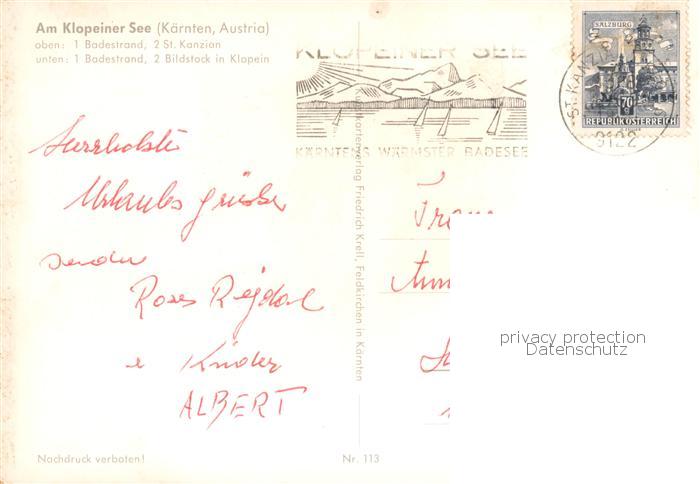 Am Klopeiner See (Kärnten, Austria)
oben: 1 Badestrand, 2 St. Kanzian
unten: 1 Badestrand, 2 Bildstock in Klopein
KLOPEINER SEE
KÄRNTENS WÄRMSTER BADESEE
SALZBURG
70
REPUBLIK ÖSTERREICH
ST. KANZI
9122
Herzlichste
Urlaubsgrüße
senden
Roses
e Kinder
ALBERT
Frau
privacy protection
Datenschutz
Kunstkartenverlag Friedrich Krell, Feldkirchen in Kärnten
Nachdruck verboten!
Nr. 113